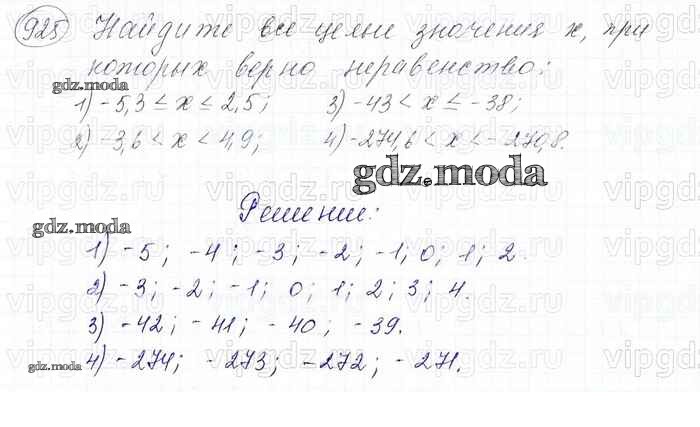 925 Найдите все целые значения x, при
которых верно неравенство:
gdz.moda
1) -5,3 ≤ x ≤ 2,5; 3) -43 < x ≤ -38;
2) -3,6 < x < 4,9; 4) -274,6 < x < -270,8.
gdz.moda
Решение:
gdz.moda
1) -5; -4; -3; -2; -1; 0; 1; 2.
2) -3; -2; -1; 0; 1; 2; 3; 4.
3) -42; -41; -40; -39.
4) -274; -273; -272; -271.
gdz.moda